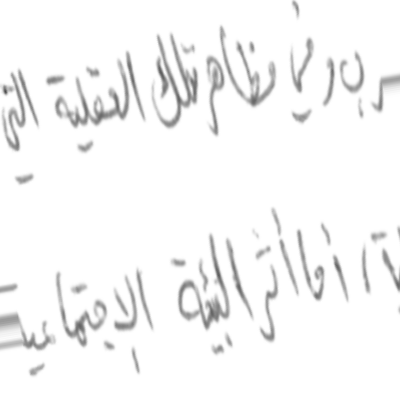 في مظاهر تلك العقلية التي
، أما أثر البيئة الاجتماعية